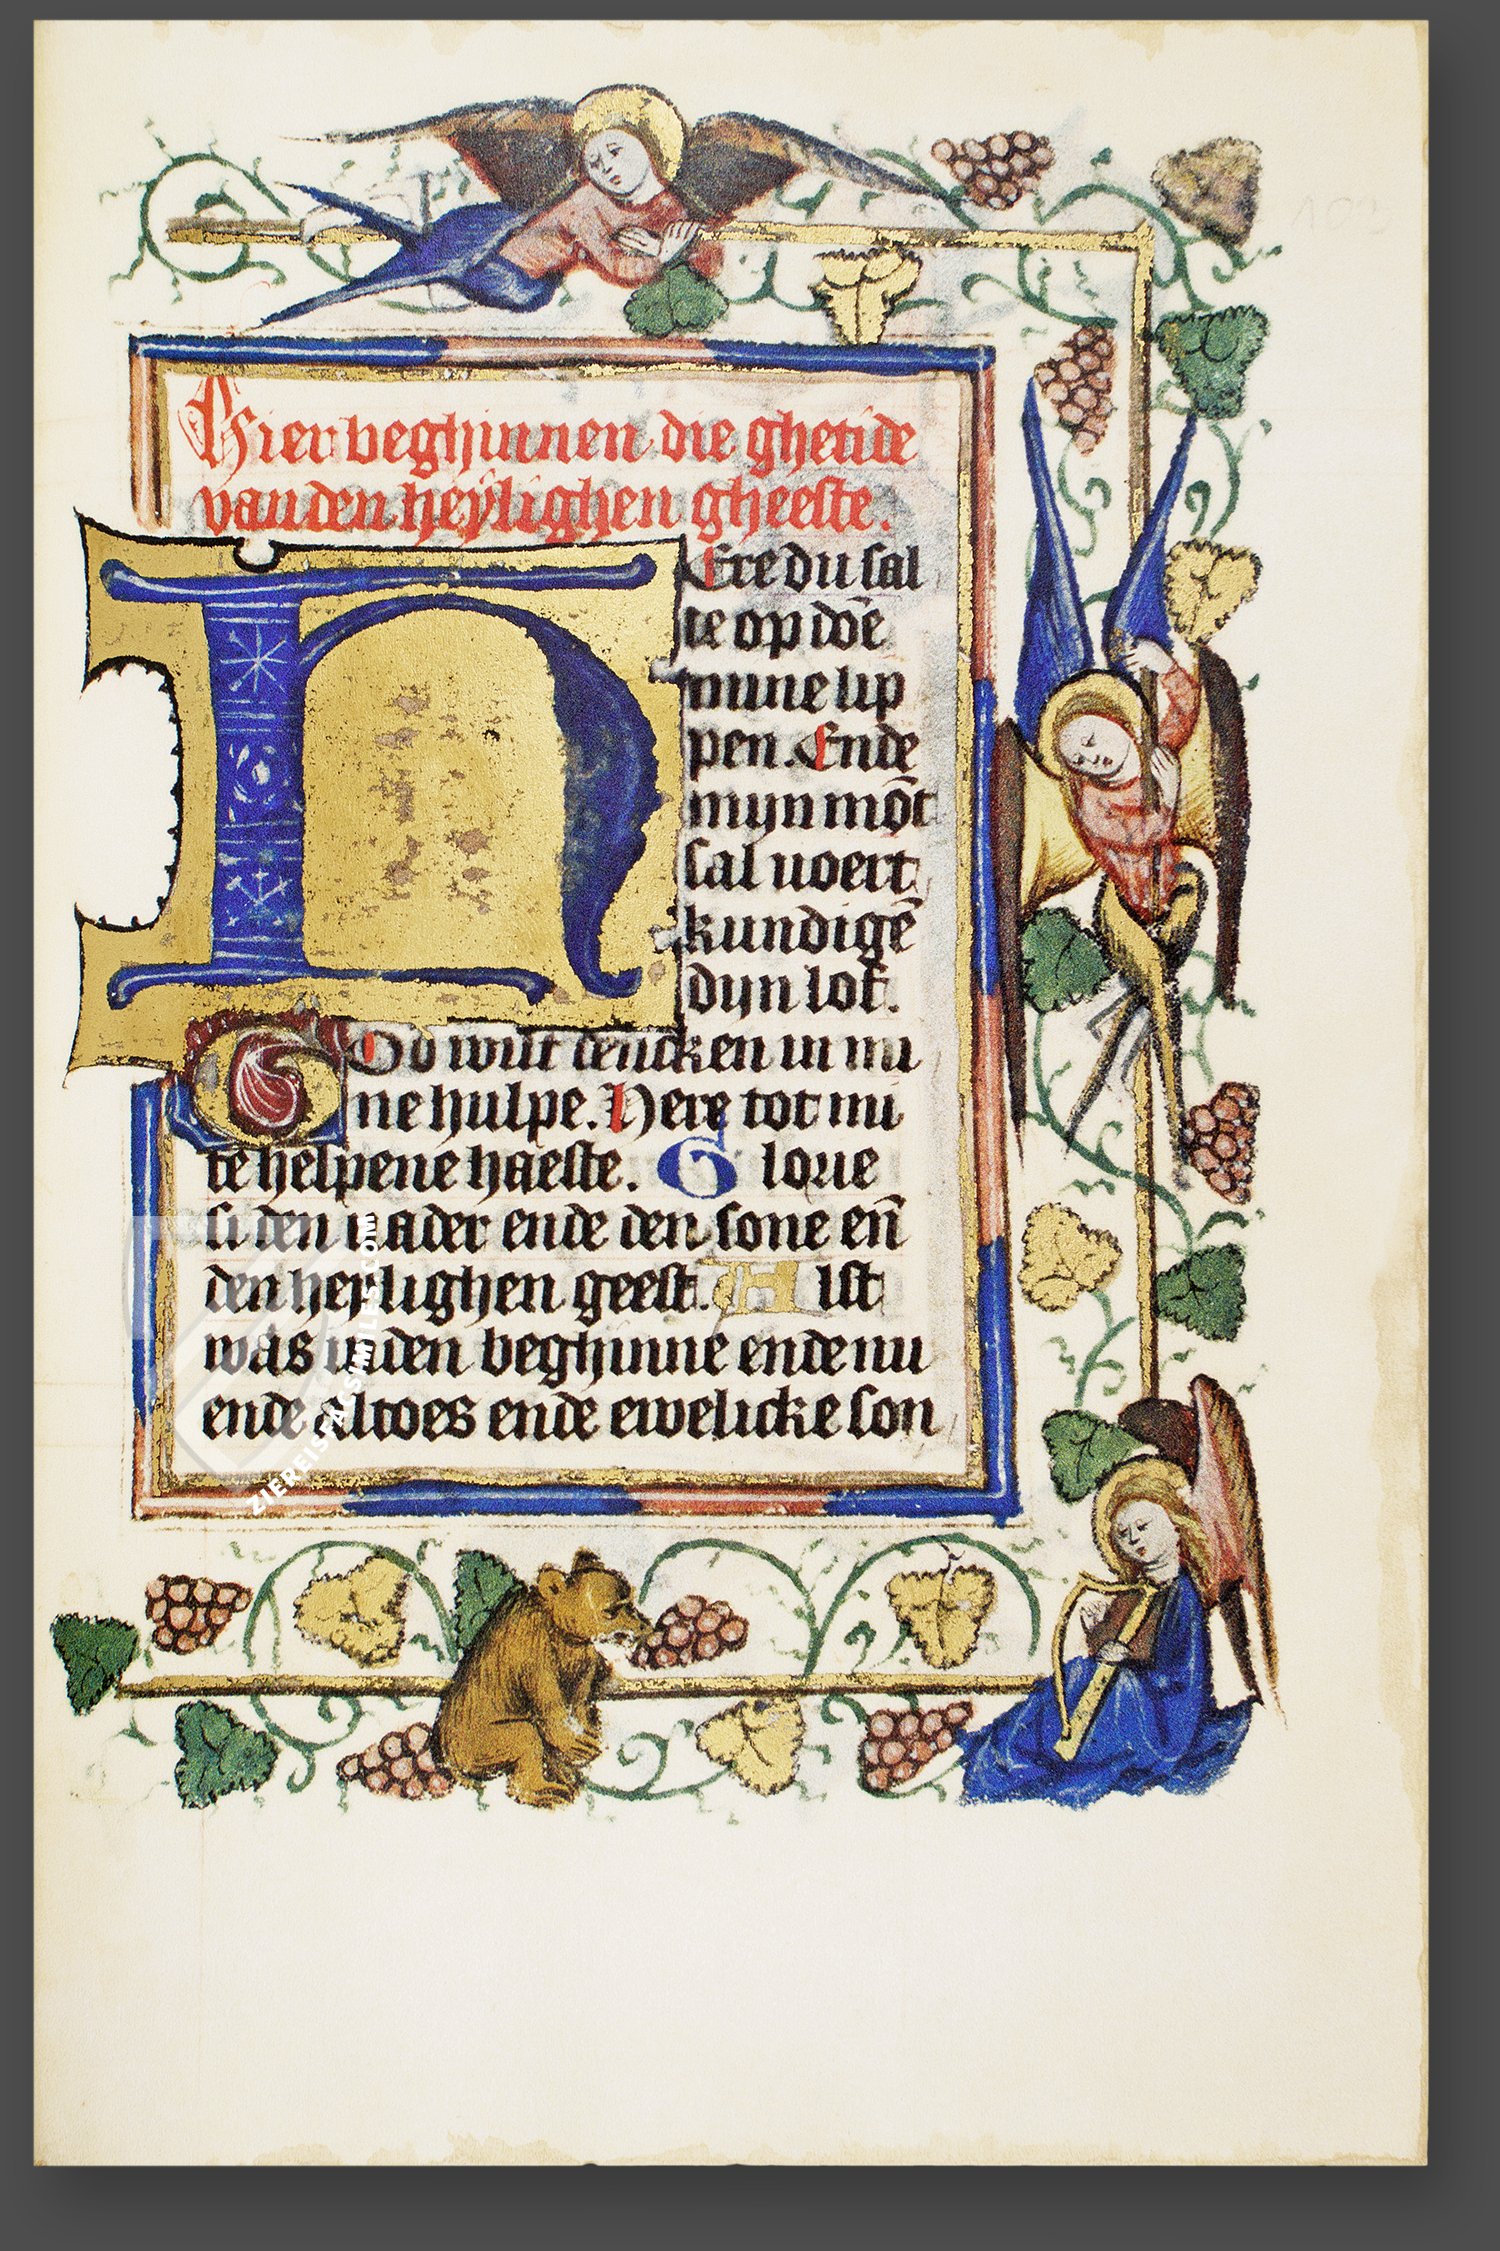 Hier beghinnen die ghetide
van den heÿlighen gheeste.
HEre du sal
te op doē
mine lip
pen. Ende
mijn mōt
sal uoert
kundigē
dijn lof.
GOd wilt dencken in mi
ne hulpe. Here tot mi
te helpene haeste. Glorie
si den uader ende den sone eñ
den heylighen geest. Alst
was in den beghinne ende nu
ende altoes ende ewelicke son
ZIEREIS FACSIMILES.COM